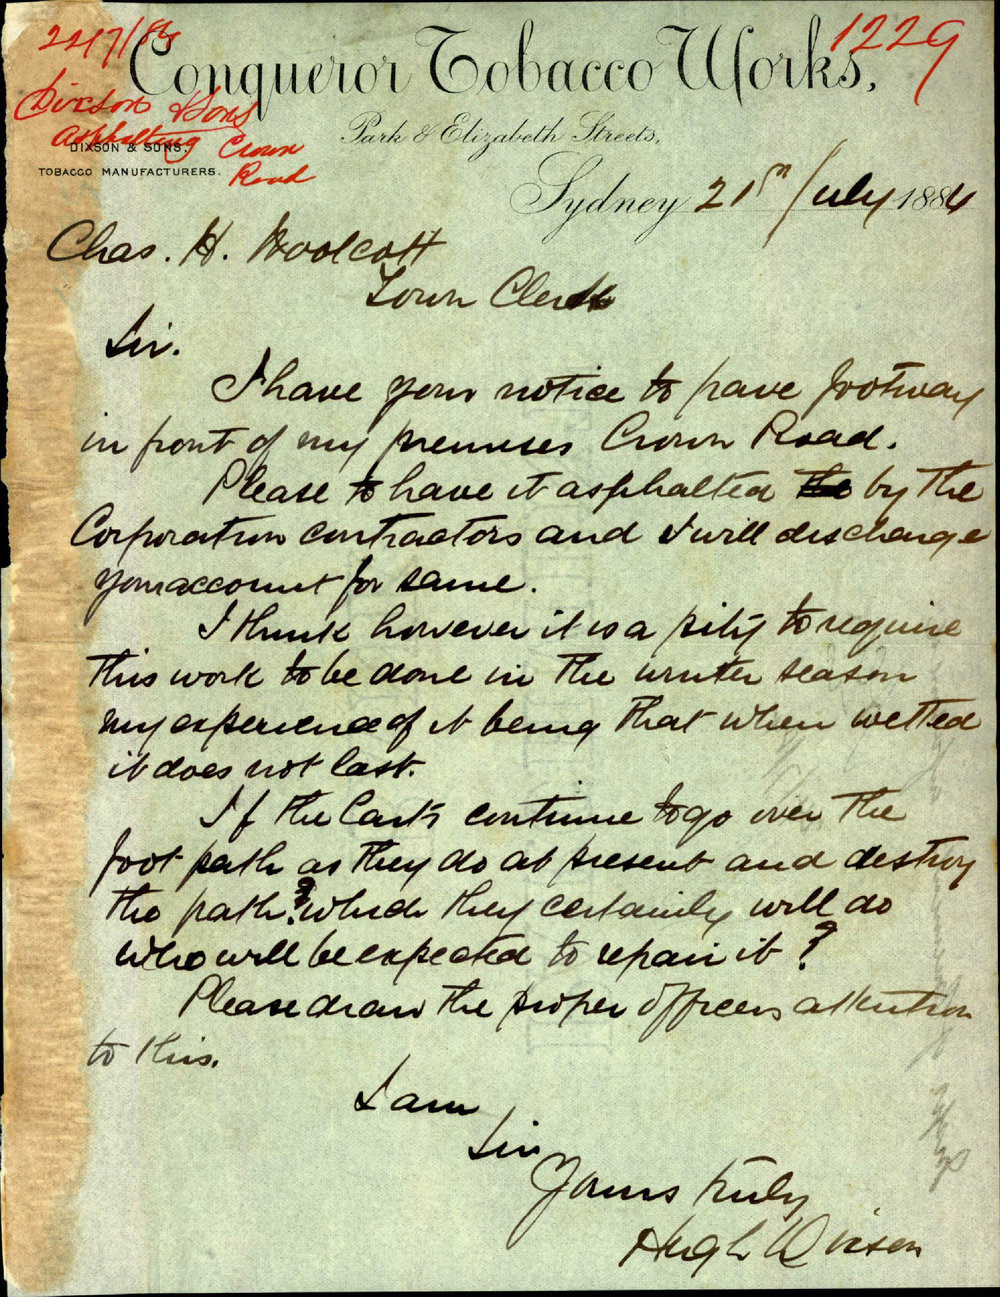 22/7/84
Conqueror Tobacco Works,
1229
Dixson & Sons
Asphalting Crown
Road
Park & Elizabeth Streets,
DIXSON & SONS,
TOBACCO MANUFACTURERS.
Sydney 21st July 1884
Chas. H. Woolcott
Town Clerk
Sir.
I have your notice to pave footway
in front of my premises Crown Road.
Please to have it asphalted by the
Corporation contractors and I will discharge
your account for same.
I think however it is a pity to require
this work to be done in the winter season
my experience of it being that when wetted
it does not last.
If the Carts continue to go over the
foot path as they do at present and destroy
the path? which they certainly will do
who will be expected to repair it?
Please draw the proper officers attention
to this.
I am
Sir
Yours truly
Hugh Dixson